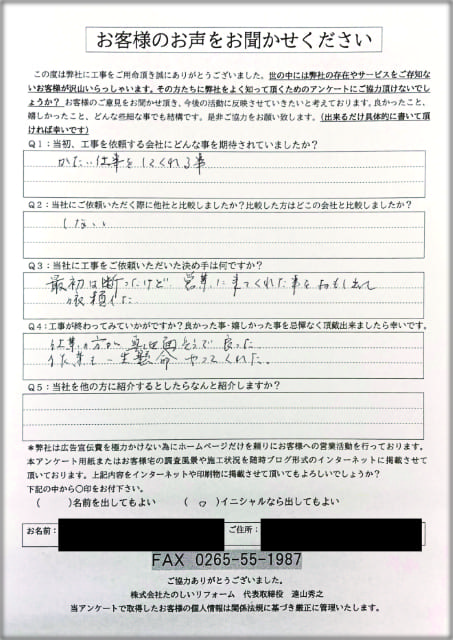 お客様のお声をお聞かせください
この度は弊社に工事をご用命頂き誠にありがとうございました。世の中には弊社の存在やサービスをご存知な
いお客様が沢山いらっしゃいます。その方たちに弊社をよく知って頂くためのアンケートにご協力頂けないでし
ょうか？ お客様のご意見をお聞かせ頂き、今後の活動に反映させていきたいと考えております。良かったこと、
嬉しかったこと、どんな些細な事でも結構です。是非ご協力をお願い致します。(出来るだけ具体的に書いて頂
ければ幸いです)
Q1：当初、工事を依頼する会社にどんな事を期待されていましたか？
かたい仕事をしてくれる事
Q2：当社にご依頼いただく際に他社と比較しましたか？比較した方はどこの会社と比較しましたか？
しない
Q3：当社に工事をご依頼いただいた決め手は何ですか？
最初は断ったけど 営業に来てくれた事をおもい出して
依頼した
Q4：工事が終わってみていかがですか？良かった事・嬉しかった事を忌憚なく頂戴出来ましたら幸いです。
仕事の方が真面目そうで良った
作業も一生懸命やってくれた。
Q5：当社を他の方に紹介するとしたらなんと紹介しますか？
＊弊社は広告宣伝費を極力かけない為にホームページだけを頼りにお客様への営業活動を行っております。
本アンケート用紙またはお客様宅の調査風景や施工状況を随時ブログ形式のインターネットに掲載させて
頂いております。上記内容をインターネットや印刷物に掲載させて頂いてもよろしいでしょうか？
下記の中から○印をお付下さい。
（　　）名前を出してもよい　　（ ○ ）イニシャルなら出してもよい
お名前：　　ご住所：
FAX 0265-55-1987
ご協力ありがとうございました。
株式会社たのしいリフォーム　代表取締役　遠山秀之
当アンケートで取得したお客様の個人情報は関係法規に基づき厳正に管理いたします。